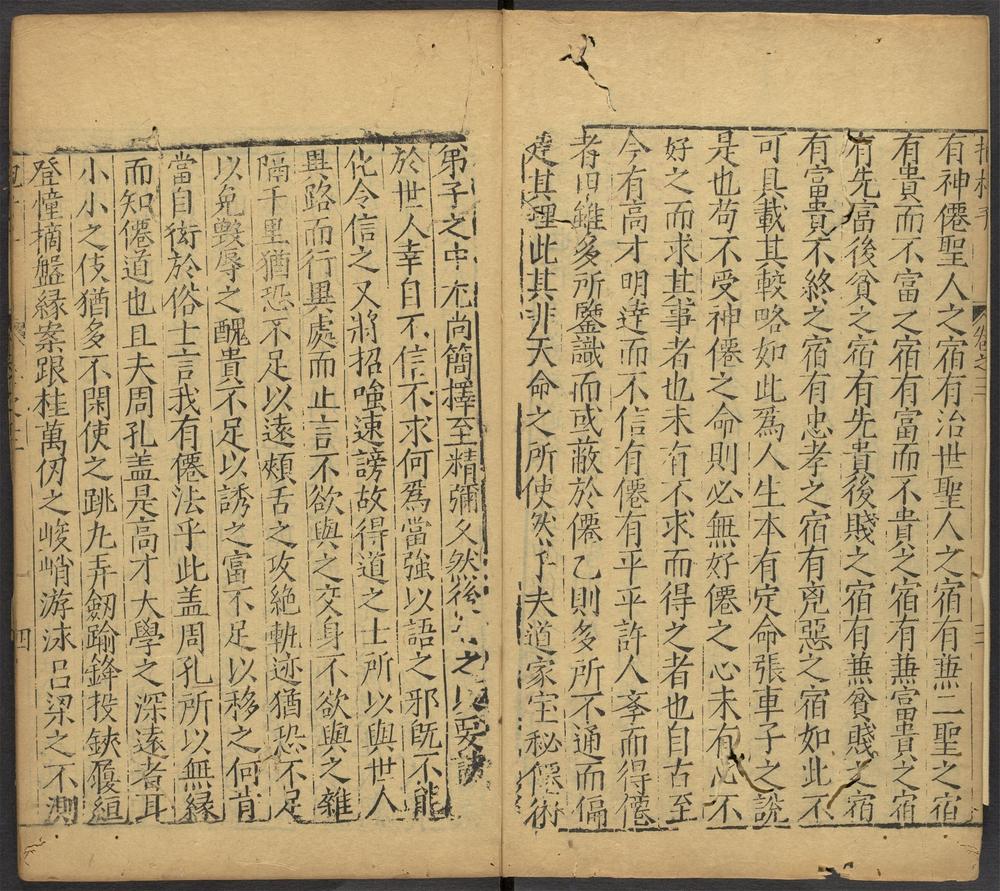 卷之十二
有神僊聖人之宿有治世聖人之宿有無二聖之宿
有貴而不富之宿有富而不貴之宿有兼富貴之宿
有先富後貧之宿有先貴後賤之宿有兼貧賤之宿
有富貴不終之宿有忠孝之宿有兇惡之宿如此不
可具載其較略如此為人生本有定命張車子之說
是也苟不受神僊之命則必無好僊之心未有心不
好之而求其事者也未有不求而得之者也自古至
今有高才明達而不信有僊有平平許人學而得僊
者甲雖多所鑒識而或蔽於僊乙則多所不通而偏
達其理此其非天命之所使然乎夫道家宝秘僊術
弟子之中尤尚簡擇至精彌久然後 之以要訣
於世人幸自不信不求何為當強以語之邪既不能
化令信之又將招嗤速謗故得道之士所以與世人
異路而行異處而止言不欲與之交身不欲與之雜
隔千里猶恐不足以遠頰舌之攻絶軌迹猶恐不足
以免毀辱之醜貴不足以誘之富不足以移之何肯
當自衒於俗士言我有僊法乎此盖周孔所以無縁
而知僊道也且夫周孔盖是高才大學之深遠者耳
小小之伎猶多不閑使之跳九弄劒踰鋒投鋏履絙
登幢摘盤縁案跟挂萬仞之峻峭游泳吕梁之不測
四